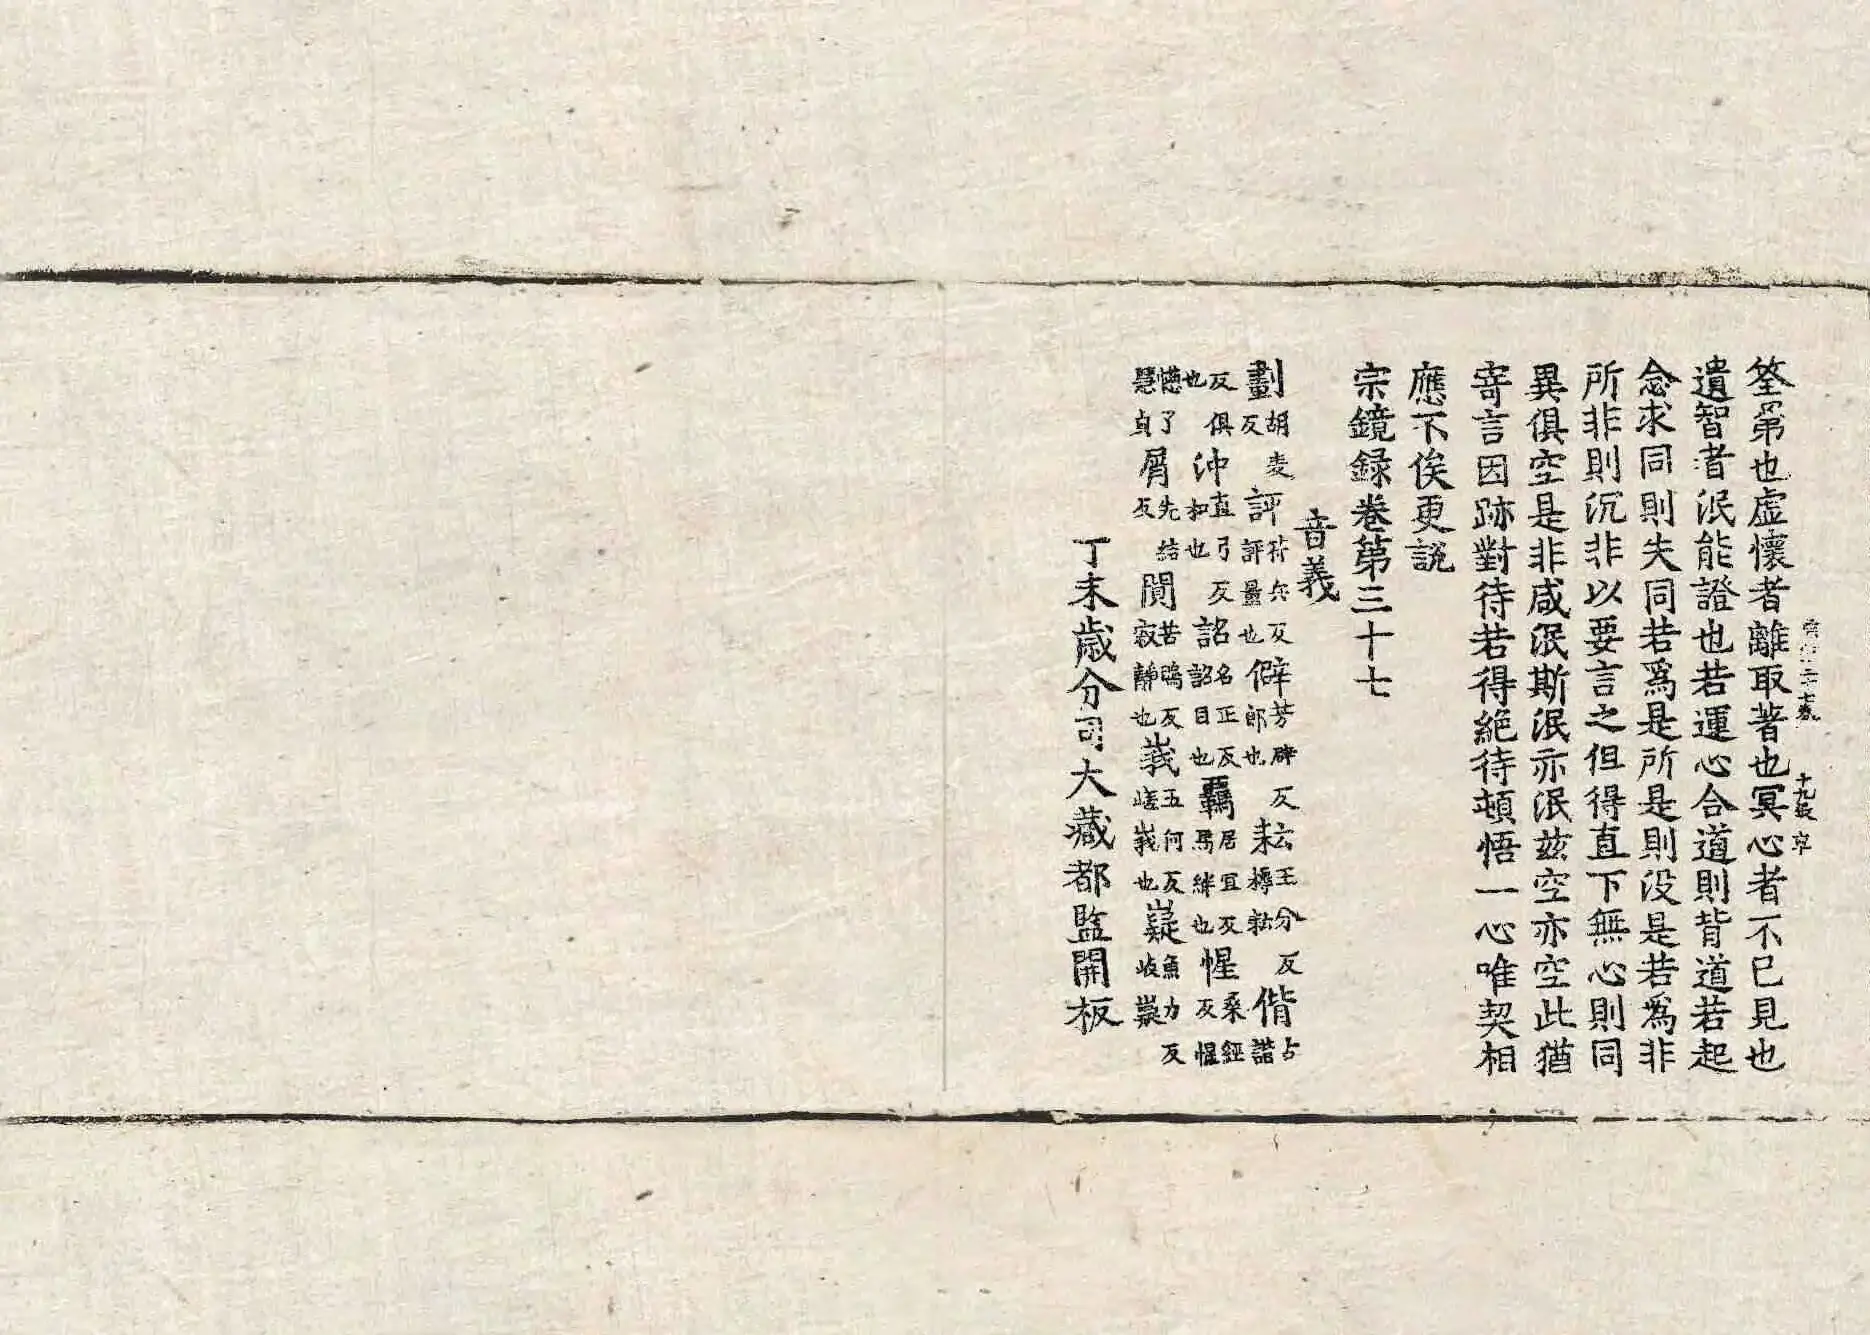 筌第也虛懷者離取著也冥心者不已見也
遺智者泯能證也若運心合道則背道若起
念求同則失同若爲是所是則没是若爲非
所非則沉非以要言之但得直下無心則同
異俱空是非咸泯斯泯亦泯兹空亦空此猶
寄言因跡對待若得絶待頓悟一心唯契相
應不俟更說
宗鏡録卷第三十七
音義
劃胡麦反評符兵反評量也僻芳辟反邪也耘王分反耨耘偕古諧
反俱也沖直弓反和也詺名正反詺目也羈居宜反馬絆也惺桑經反惺
憽了慧皃屑先結反闃苦鵙反寂靜也峩五何反嵯峩也嶷魚力反岐嶷
丁未歲分司大藏都監開板